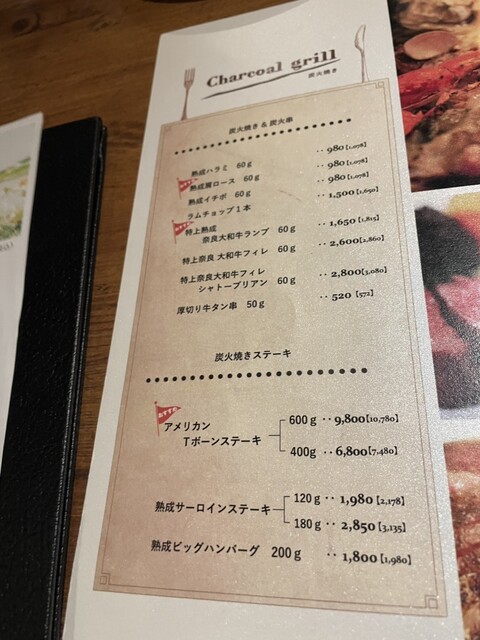 Charcoal grill
炭火焼き
炭火焼き & 炭火串
熟成ハラミ 60g ‥ 980 [1,078]
熟成肩ロース 60g ‥ 980 [1,078]
熟成イチボ 60g ‥ 980 [1,078]
ラムチョップ1本 ‥ 1,500 [1,650]
特上熟成
奈良大和牛ランプ 60g ‥ 1,650 [1,815]
特上奈良 大和牛フィレ 60g ‥ 2,600 [2,860]
特上奈良 大和牛フィレ
シャトーブリアン 60g ‥ 2,800 [3,080]
厚切り牛タン串 50g ‥ 520 [572]
炭火焼きステーキ
アメリカン
Tボーンステーキ
600g ‥ 9,800 [10,780]
400g ‥ 6,800 [7,480]
熟成サーロインステーキ
120g ‥ 1,980 [2,178]
180g ‥ 2,850 [3,135]
熟成ビッグハンバーグ 200g ‥ 1,800 [1,980]